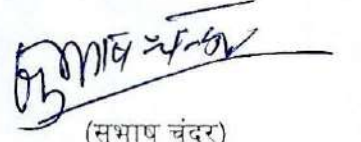 सुभाष चंदर
(सुभाष चंदर)